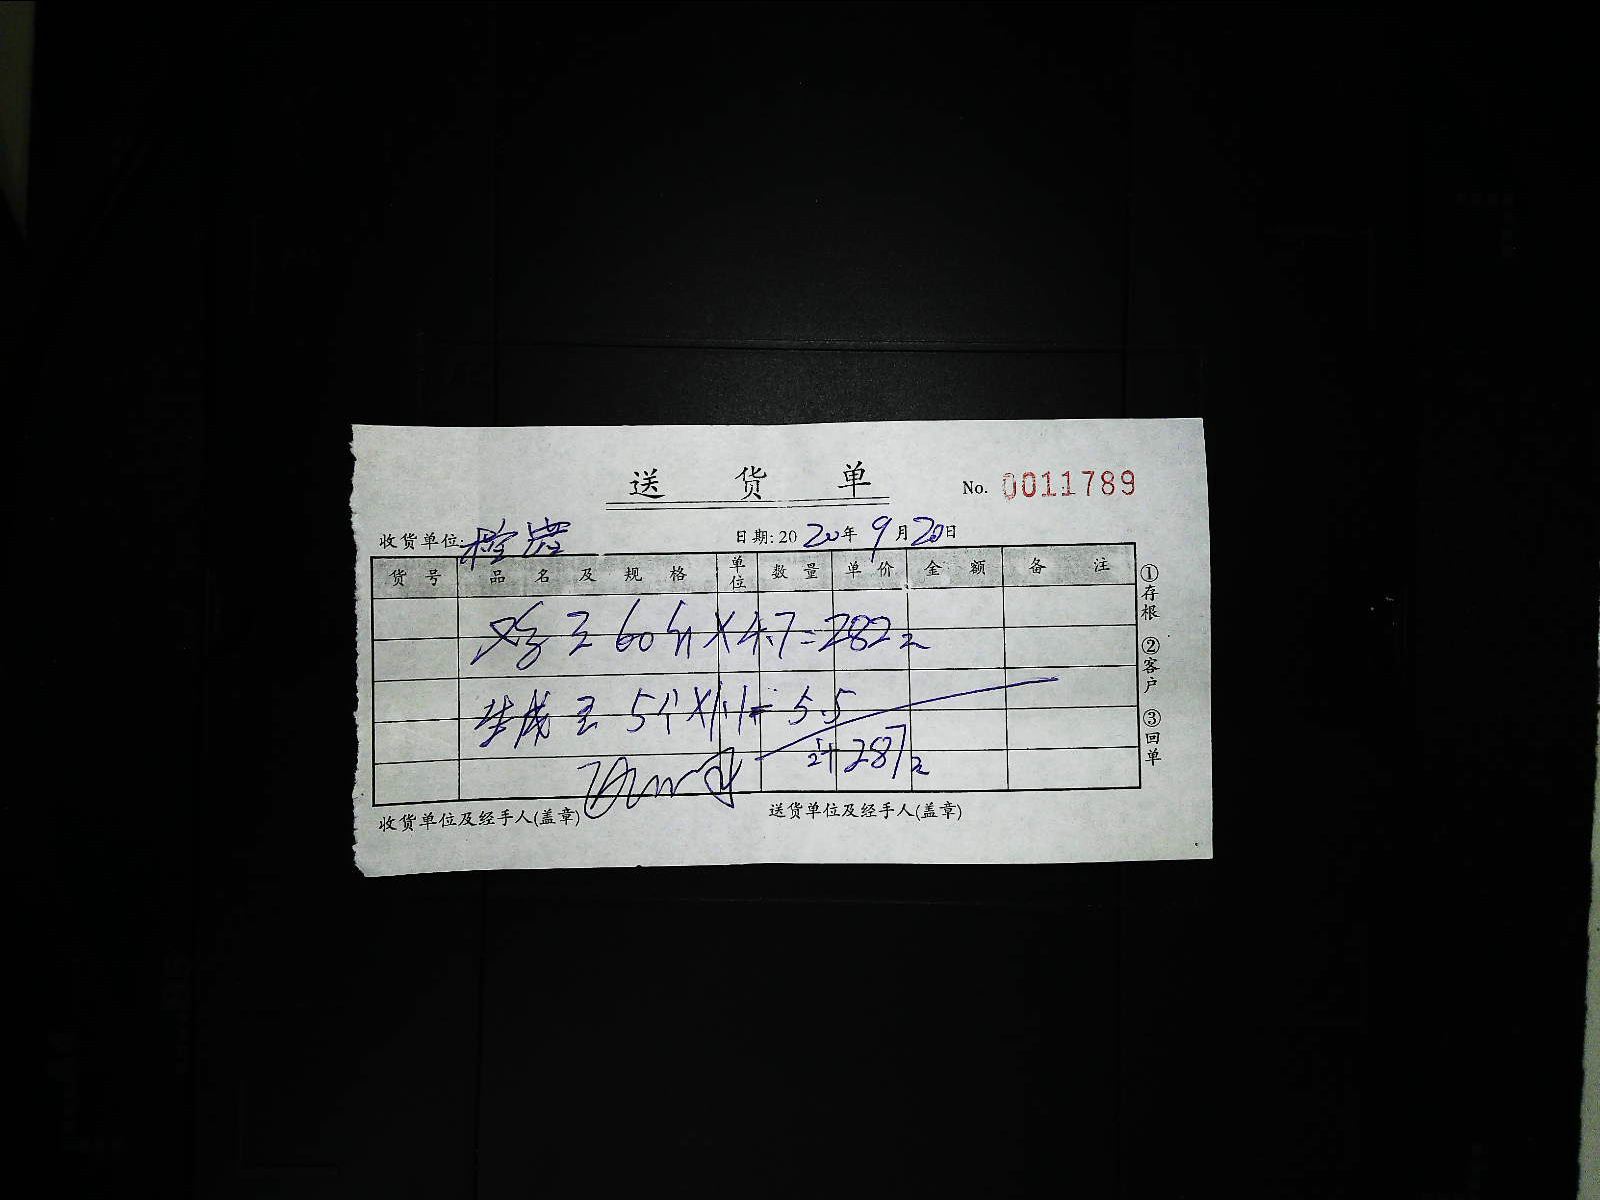 送货单 No. 0011789
收货单位: 日期: 2020年9月20日
货号 品名及规格 单位 数量 单价 金额 备注
鸡旦 60斤×4.7=282元
旦 5个×1.1=5.5
计287元
收货单位及经手人(盖章) 送货单位及经手人(盖章)
①存根 ②客户 ③回单